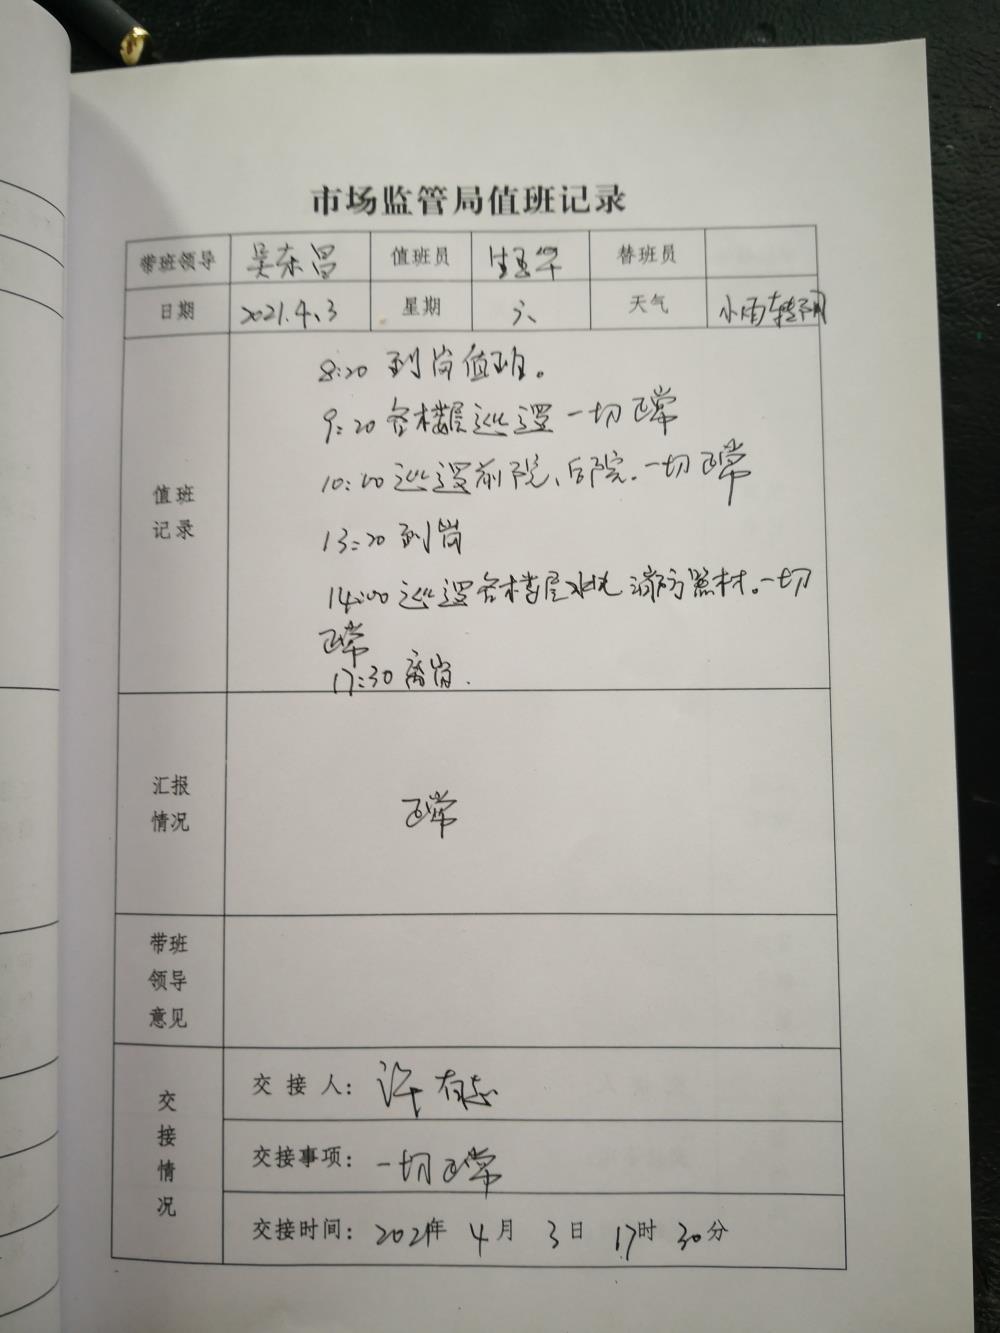 市场监管局值班记录
带班领导 吴东昌 值班员 替班员
日期 2021.4.3 星期 六 天气 小雨转阴
8:20 到岗值班。
9:20 各楼层巡逻一切正常
值班记录 10:00 巡逻前院、后院.一切正常
13:20 到岗
14:00 巡逻各楼层水电消防器材。一切
正常
17:30 离岗.
汇报情况 正常
带班领导意见
交接情况
交接人: 许有志
交接事项: 一切正常
交接时间: 2021年 4月 3日 17时 30分